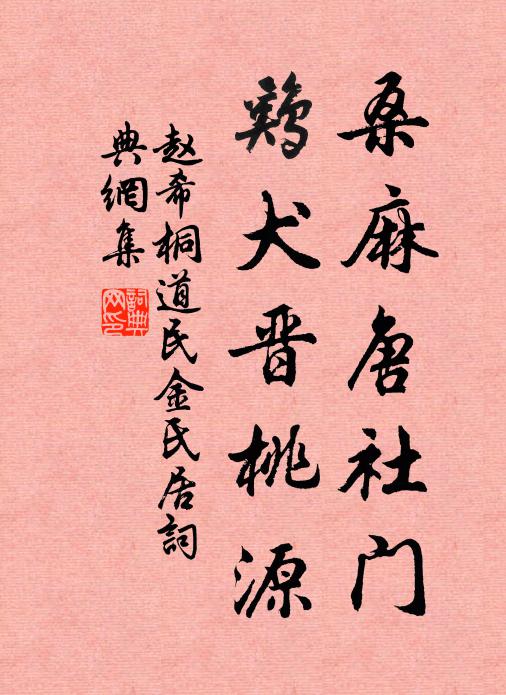 桑麻唐社门
鸡犬晋桃源
赵希桐道民金民居詞
典網集
詞典
网印